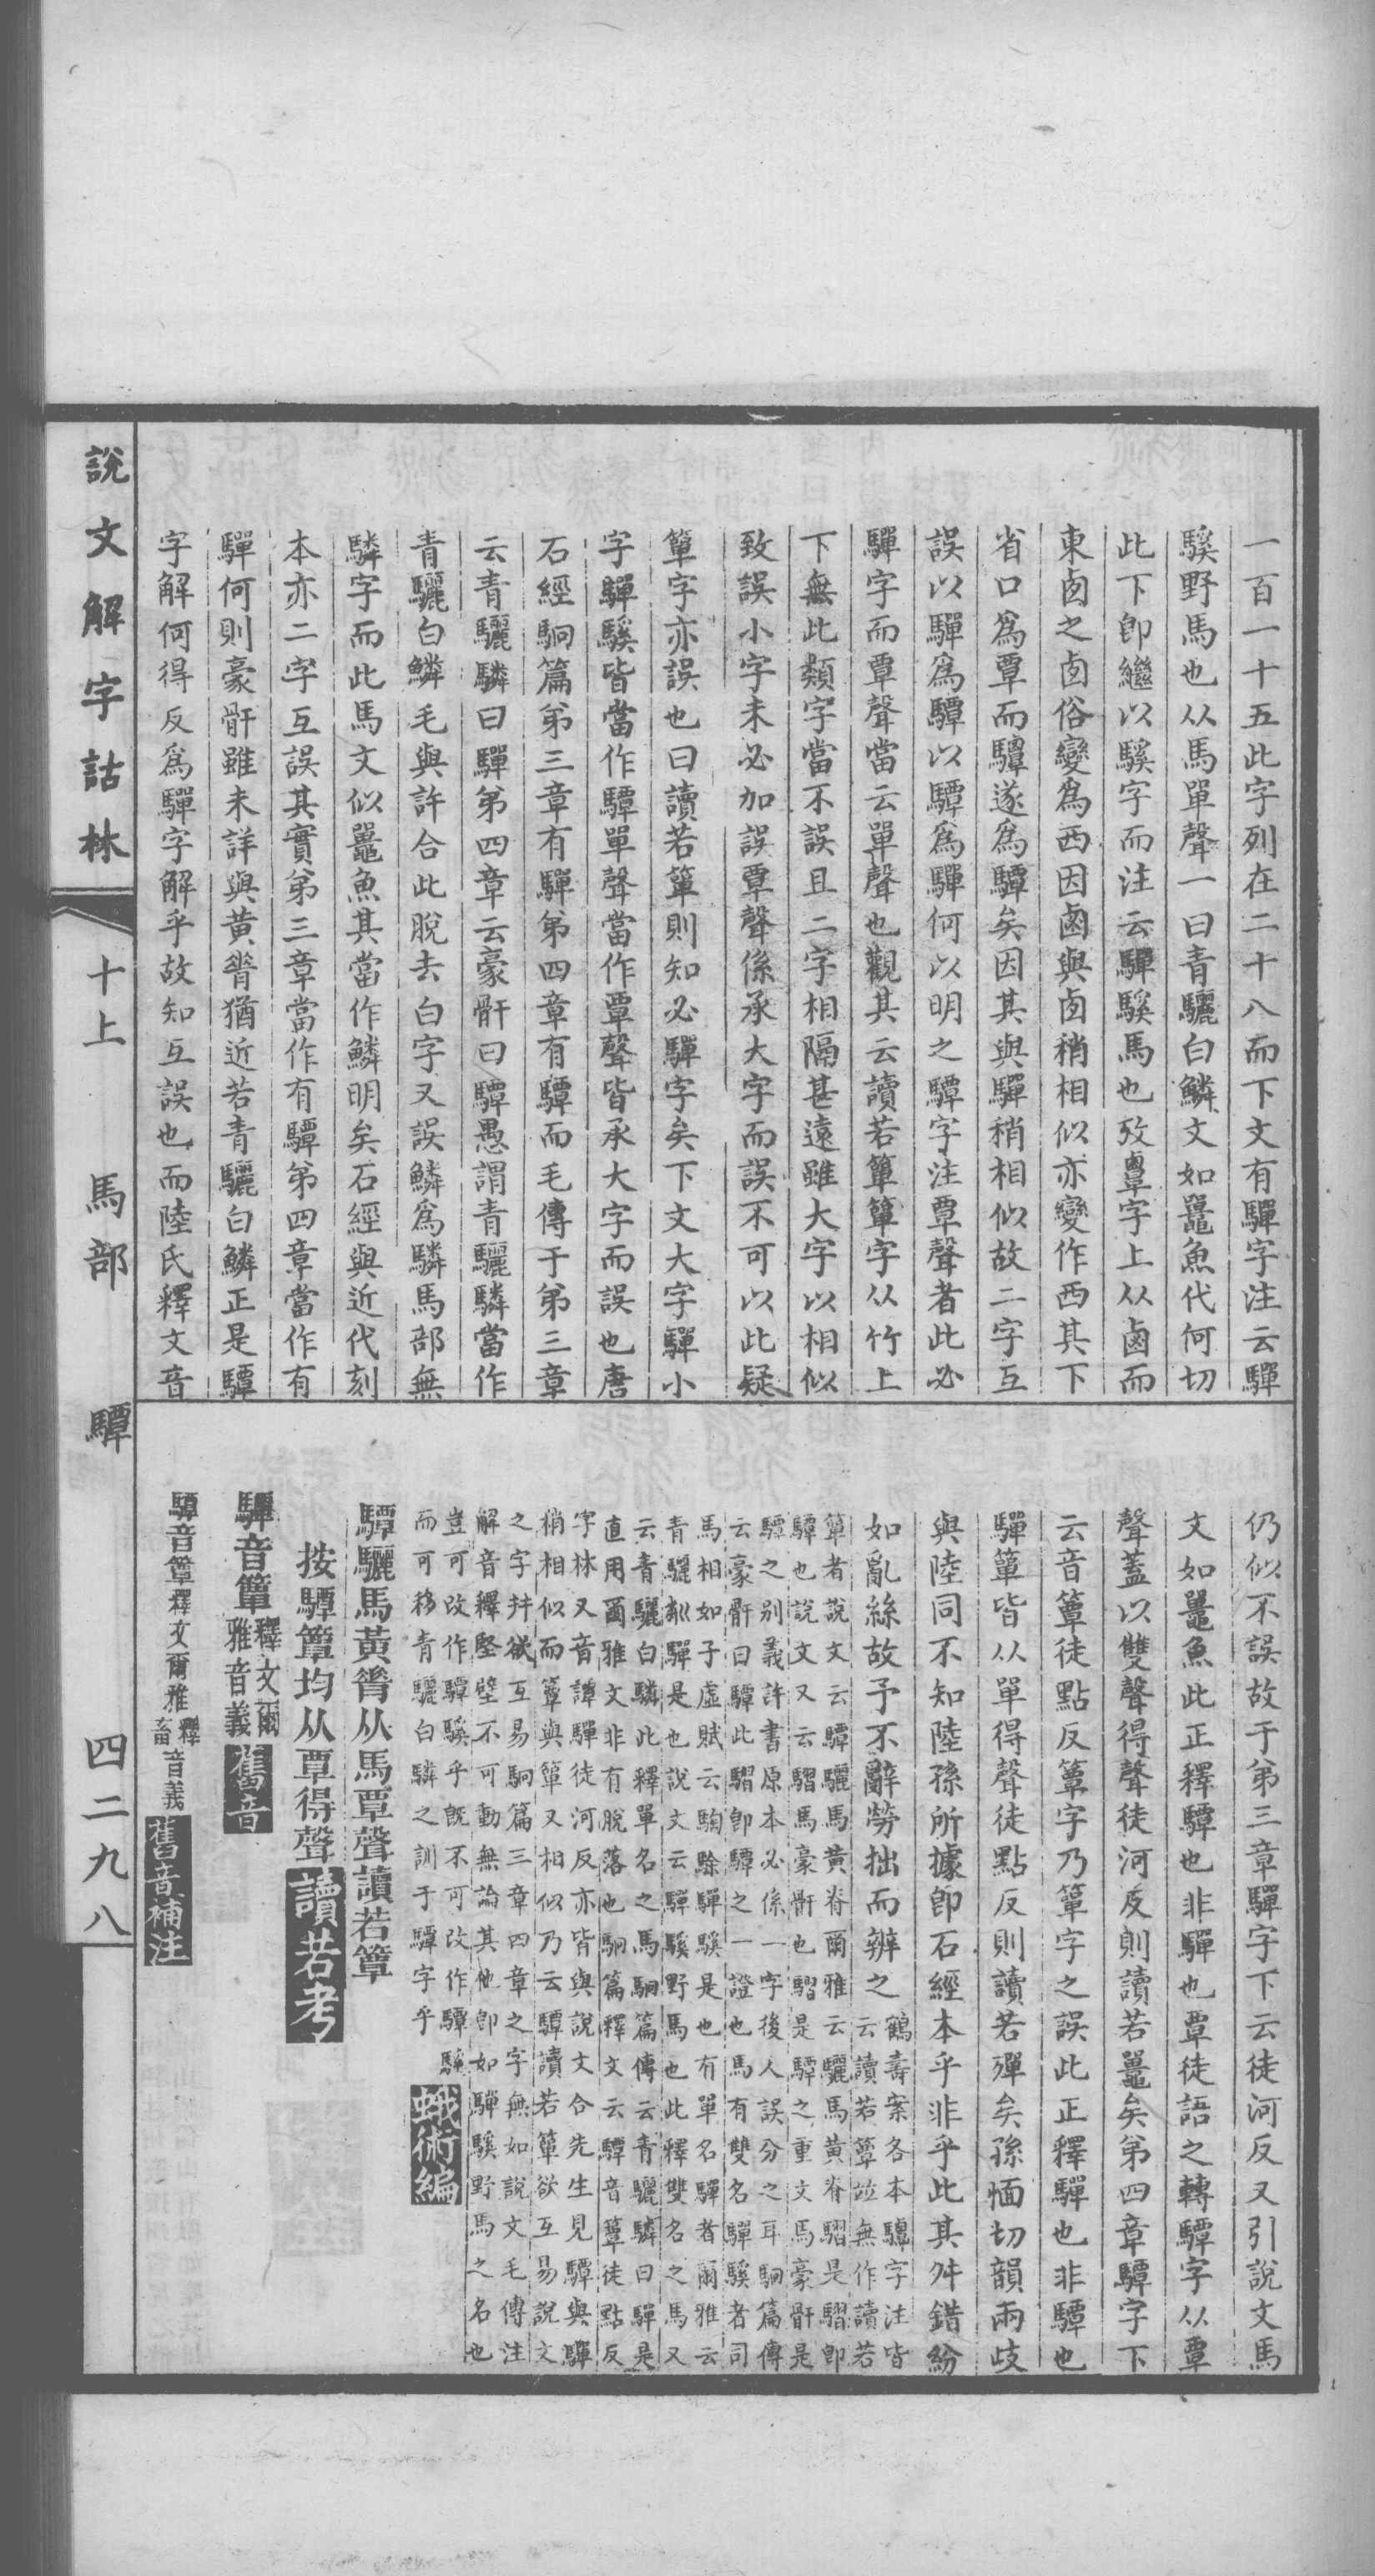 一百一十五此字列在二十八而下文有驒字注云驒
騱野馬也从馬單聲一曰青驪白鱗文如鼉魚代何切
此下卽繼以騱字而注云驒騱馬也攷𪉷字上从鹵而
東鹵之鹵俗變爲西因鹵與鹵稍相似亦變作西其下
省口爲覃而驔遂爲驔矣因其與驒稍相似故二字互
誤以驒爲驔以驔爲驒何以明之驔字注覃聲者此必
驒字而覃聲當云單聲也觀其云讀若簞簞字从竹上
下無此類字當不誤且二字相隔甚遠雖大字以相似
致誤小字未必加誤覃聲係承大字而誤不可以此疑
簞字亦誤也曰讀若簞則知必驒字矣下文大字驒小
字驒騱皆當作驔單聲當作覃聲皆承大字而誤也唐
石經駉篇第三章有驒第四章有驔而毛傳于第三章
云青驪驎曰驒第四章云豪骭曰驔愚謂青驪驎當作
青驪白鱗毛與許合此脫去白字又誤鱗爲驎馬部無
驎字而此馬文似鼉魚其當作鱗明矣石經與近代刻
本亦二字互誤其實第三章當作有驔第四章當作有
驒何則豪骭雖未詳與黃脊猶近若青驪白鱗正是驔
字解何得反爲驒字解乎故知互誤也而陸氏釋文音
仍似不誤故于第三章驒字下云徒河反又引說文馬
文如鼉魚此正釋驔也非驒也覃徒語之轉驔字从覃
聲蓋以雙聲得聲徒河反則讀若鼉矣第四章驔字下
云音簟徒點反簟字乃簞字之誤此正釋驒也非驔也
驒簞皆从單得聲徒點反則讀若殫矣孫愐切韻兩歧
與陸同不知陸孫所據卽石經本乎非乎此其舛錯紛
如亂絲故予不辭勞拙而辨之
鶴壽案各本驔字注皆
云讀若簟竝無作讀若
簞者說文云驔驪馬黃脊爾雅云驪馬黃脊騽是騽卽
驔也說文又云騽馬豪骭也騽是驔之重文馬豪骭是
驔之別義許書原本必係一字後人誤分之耳駉篇傳
云豪骭曰驔此騽卽驔之一證也馬有雙名驒騱者司
馬相如子虛賦云騊駼驒騱是也有單名驒者爾雅云
青驪驎驒是也說文云驒騱野馬也此釋雙名之馬又
云青驪白驎此釋單名之馬駉篇傳云青驪驎曰驒是
直用爾雅文非有脫落也駉篇釋文云驔音簟徒點反
字林又音譚驒徒河反亦皆與說文合先生見驔與驒
稍相似而簟與簞又相似乃云驔讀若簞欲互易說文
之字幷欲互易駉篇三章四章之字無如說文毛傳注
解音釋堅壁不可動無論其他卽如驒騱野馬之名也
豈可改作驔騱乎旣不可改作驔騱
而可移青驪白驎之訓于驔字乎
蛾術編
驔驪馬黃脊从馬覃聲讀若簟
按驔簟均从覃得聲
讀若考
驒音簞
釋文爾
雅音義
舊音
驔音簟釋文爾雅
釋
畜
音義
舊音補注
說文解字詁林
十上
馬部
驔
四二九八